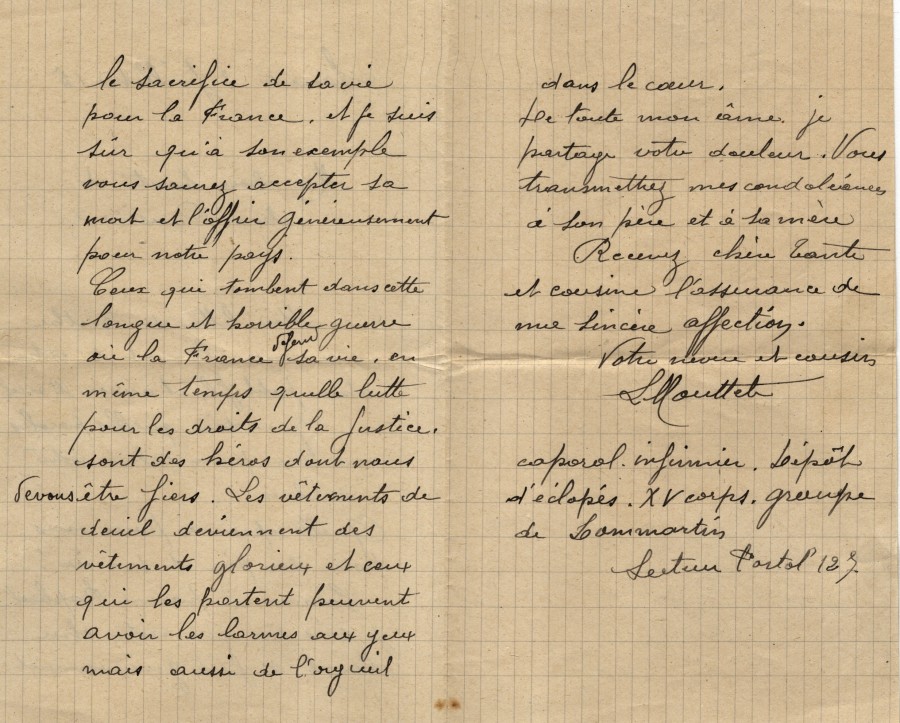 le sacrifice de sa vie
pour la France, et je suis
sûr qu'à son exemple
vous saurez accepter sa
mort et l'offrir généreusement
pour notre pays.
Ceux qui tombent dans cette
longue et horrible guerre
où la France défend sa vie, en
même temps qu'elle lutte
pour les droits de la Justice,
sont des héros dont nous
devons être fiers. Les vêtements de
deuil deviennent des
vêtements glorieux et ceux
qui les portent peuvent
avoir les larmes aux yeux
mais aussi de l'orgueil
dans le cœur.
De toute mon âme, je
partage votre douleur. Vous
transmettrez mes condoléances
à son père et à sa mère
Recevez chère tante
et cousine l'assurance de
ma sincère affection.
Votre neveu et cousin
L Mouttet
caporal-infirmier. Dépôt
d'éclopés. XV corps. groupe
de Dommartin
Secteur Postal 125.